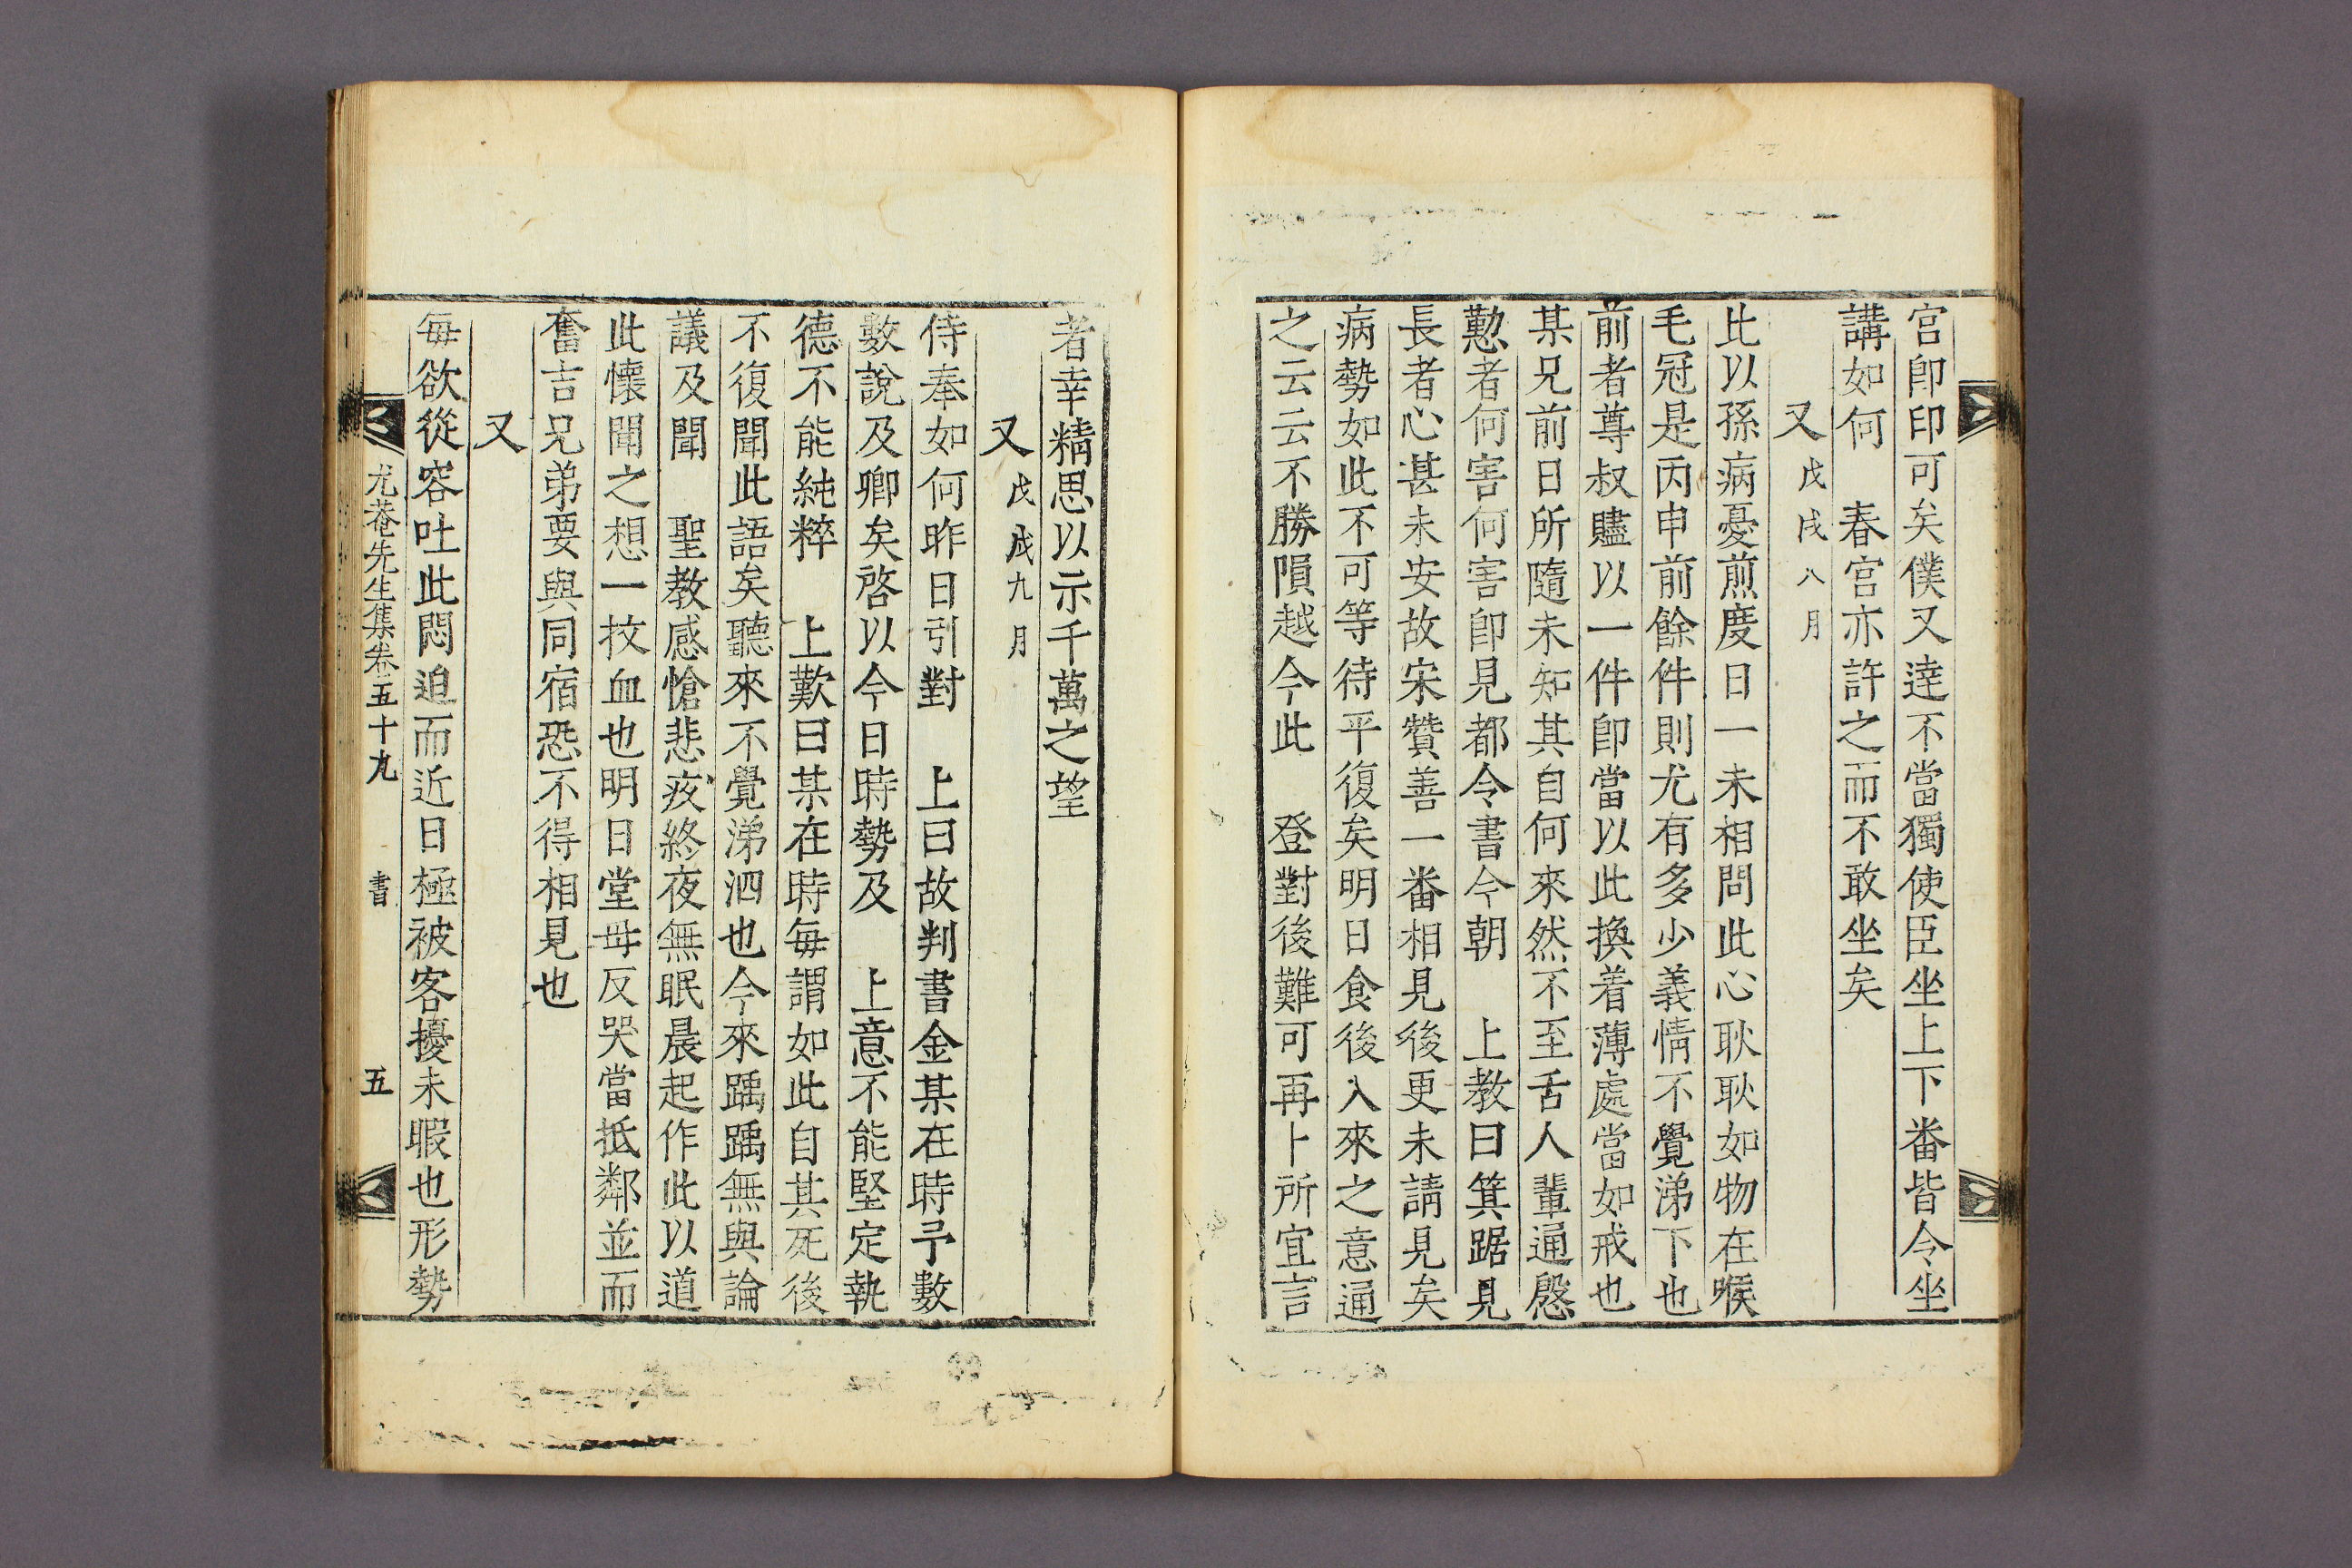 宮卽印可矣僕又達不當獨使臣坐上下番皆令坐
講如何　春宮亦許之而不敢坐矣
又 戊戌八月
比以孫病憂煎度日一未相問此心耿耿如物在喉
毛冠是丙申前餘件則尤有多少義情不覺涕下也
前者尊叔贐以一件卽當以此換着薄處當如戒也
某兄前日所隨未知其自何來然不至舌人輩通慇
懃者何害何害卽見都令書今朝　上教曰箕踞見
長者心甚未安故宋贊善一番相見後更未請見矣
病勢如此不可等待平復矣明日食後入來之意通
之云云不勝隕越今此　登對後難可再卜所宜言
者幸精思以示千萬之望
又 戊戌九月
侍奉如何昨日引對　上曰故判書金某在時予數
數說及卿矣啓以今日時勢及　上意不能堅定執
德不能純粹　上歎曰某在時每謂如此自其死後
不復聞此語矣聽來不覺涕泗也今來踽踽無與論
議及聞　聖教感愴悲疚終夜無眠晨起作此以道
此懷聞之想一抆血也明日堂毋反哭當抵鄰並而
奮吉兄弟要與同宿恐不得相見也
又
每欲從容吐此悶迫而近日極被客擾未暇也形勢
尤菴先生集卷五十九　書　五